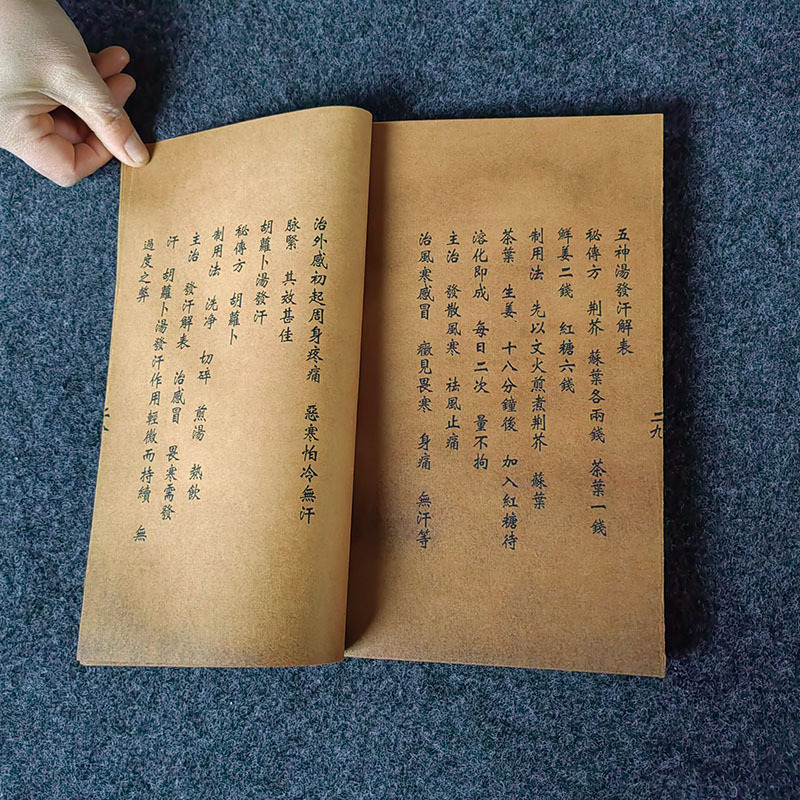 二九
五神湯發汗解表
秘傳方 荆芥 蘇葉各兩錢 茶葉一錢
鮮姜二錢 紅糖六錢
制用法 先以文火煎煮荆芥 蘇葉
茶葉 生姜 十八分鐘後 加入紅糖待
溶化即成 每日二次 量不拘
主治 發散風寒 祛風止痛
治風寒感冒 癥見畏寒 身痛 無汗等
治外感初起周身疼痛 惡寒怕冷無汗
脉緊 其效甚佳
胡蘿卜湯發汗
秘傳方 胡蘿卜
制用法 洗净 切碎 煎湯 熱飲
主治 發汗解表 治感冒 畏寒需發
汗 胡蘿卜湯發汗作用輕微而持續 無
過度之弊